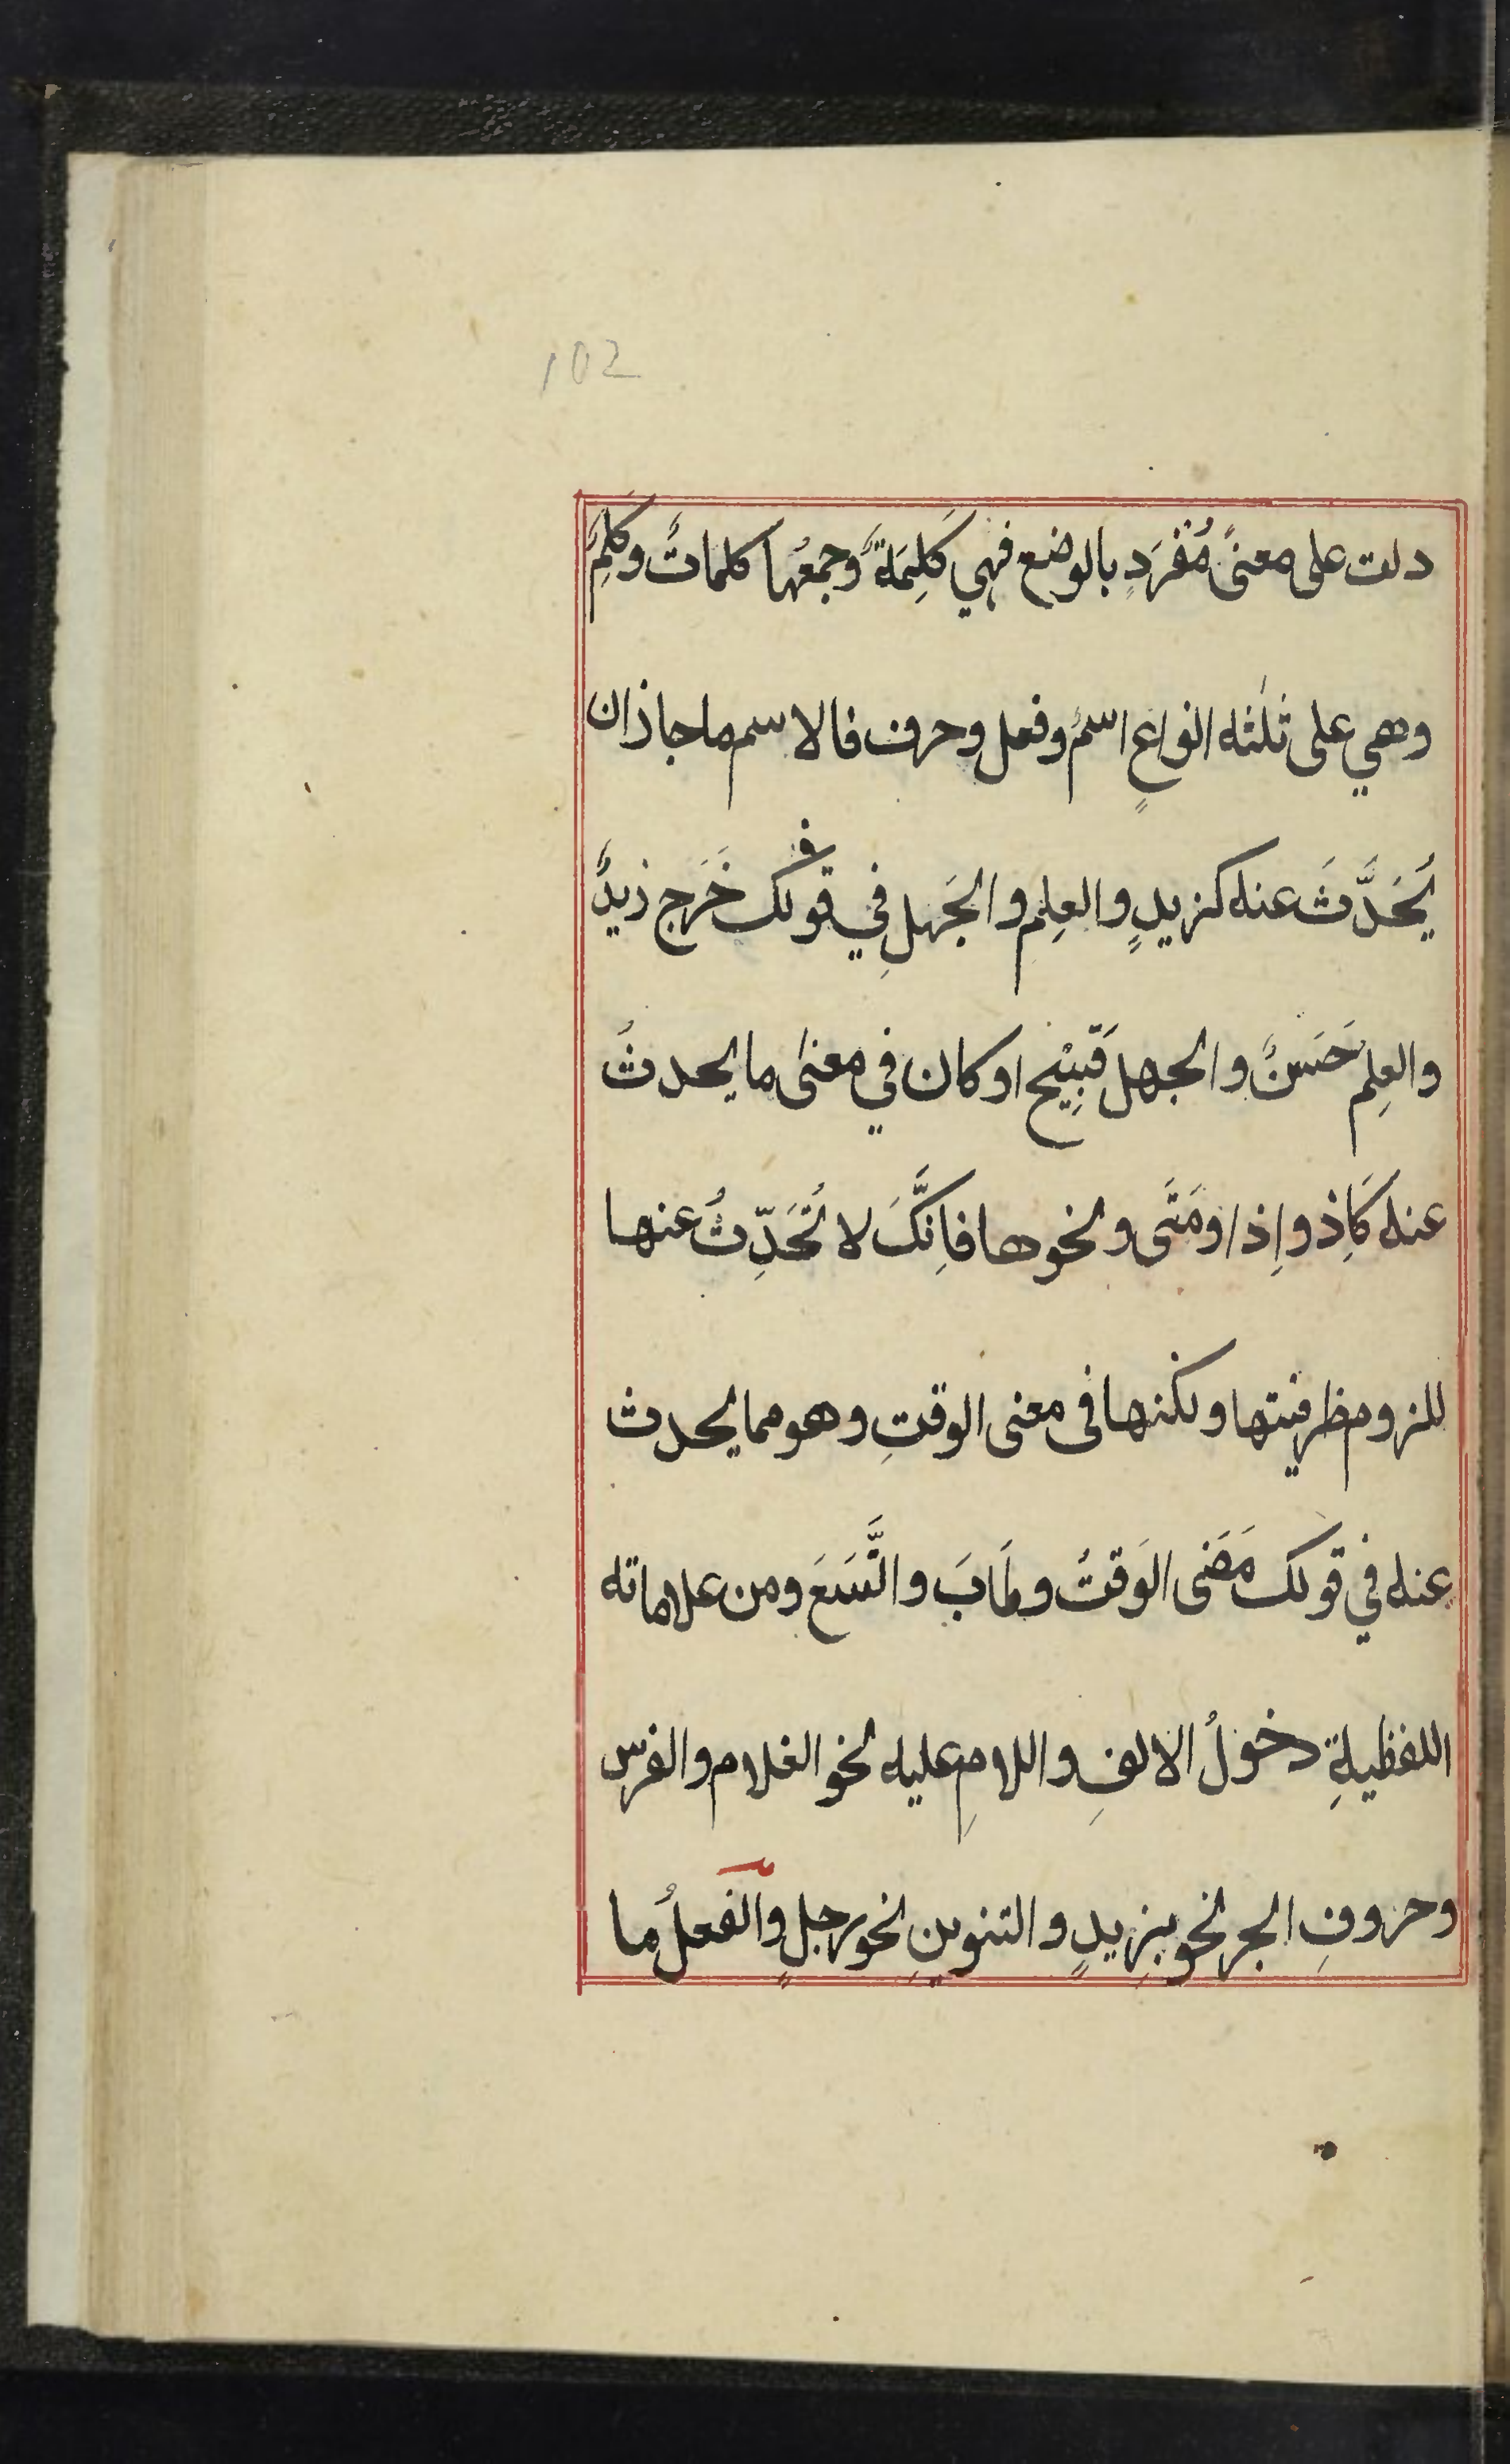 102
دلت على معنىً مُفْرَدٍ بالوضع فهي كَلِمَةٌ وجمعُها كلماتٌ وكَلِمٌ
وهي على ثلٰثه انواعٍ اسمٌ وفعل وحرف فالاسم ما جاز ان
يُحَدَّثَ عنه كزيدٍ والعِلم والجَهلِ في قولك خَرَج زيدٌ
والعِلم حَسَنٌ والجهل قَبِيْح او كان في معنى ما يحدثُ
عنه كَاِذ واِذا ومَتَى ونحوها فاِنَّكَ لا تُحَدِّثُ عنها
للزوم ظرفيتها ولكنها فى معنى الوقتِ وهو مما يحدث
عنه في قولك مَضَى الوَقتُ وطَابَ واتَّسَعَ ومن علاماته
اللفظيةِ دخولُ الالفِ واللامِ عليه نحو الغلام والفرس
وحروفِ الجر نحو بِزيدٍ والتنوينِ نحو رجلٍ والفعلُ ما